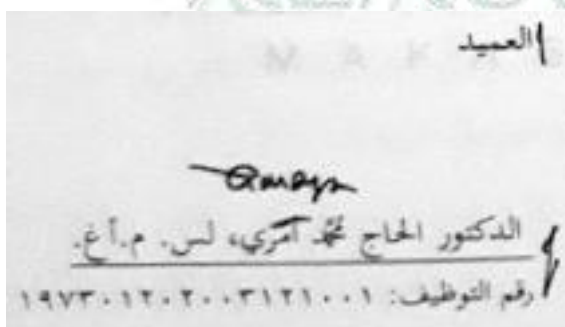 العميد
الدكتور الحاج محمد آمري، لس. م.أغ.
رقم التوظيف: ١٩٧٣٠١٢٠٢٠٠٣١٢١٠٠١